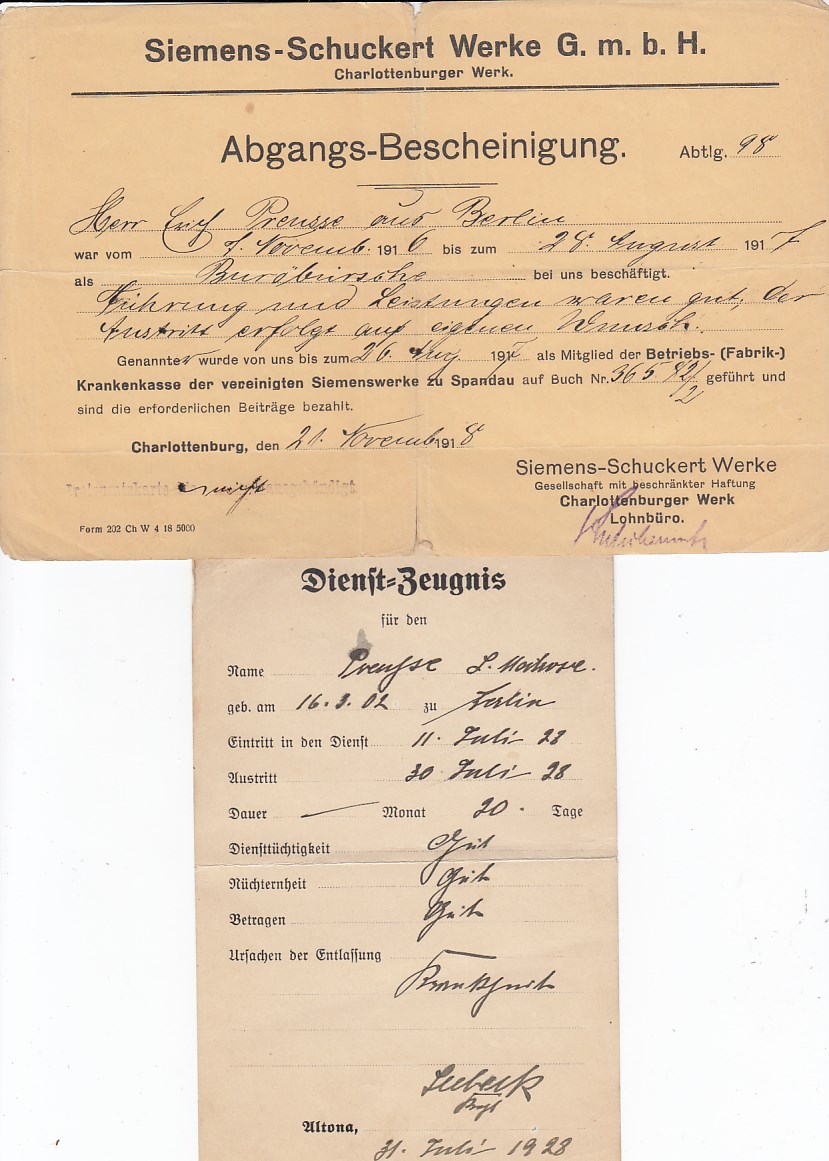 Siemens-Schuckert Werke G. m. b. H.
Charlottenburger Werk.
Abgangs-Bescheinigung.
Abtlg. 98
Herr Erich Preusse aus Berlin
war vom Novemb. 1916 bis zum 28. August 1917
als Burobursche bei uns beschäftigt.
Führung und Leistungen waren gut, der
Austritt erfolgt auf eigenen Wunsch.
Genannter wurde von uns bis zum 26. Aug. 1917 als Mitglied der Betriebs- (Fabrik-)
Krankenkasse der vereinigten Siemenswerke zu Spandau auf Buch Nr. geführt und
sind die erforderlichen Beiträge bezahlt.
Charlottenburg, den 21. November 1918
Siemens-Schuckert Werke
Gesellschaft mit beschränkter Haftung
Charlottenburger Werk
Lohnbüro.
Form 202 Ch W 4 18 5000
Dienst-Zeugnis
für den
Name Preusse
geb. am 16.3.02 zu Berlin
Eintritt in den Dienst 11. Juli 28
Austritt 30 Juli 28
Dauer — Monat 20. Tage
Diensttüchtigkeit Gut
Nüchternheit Gut
Betragen Gut
Ursachen der Entlassung
Krankheit
Altona,
31. Juli 1928